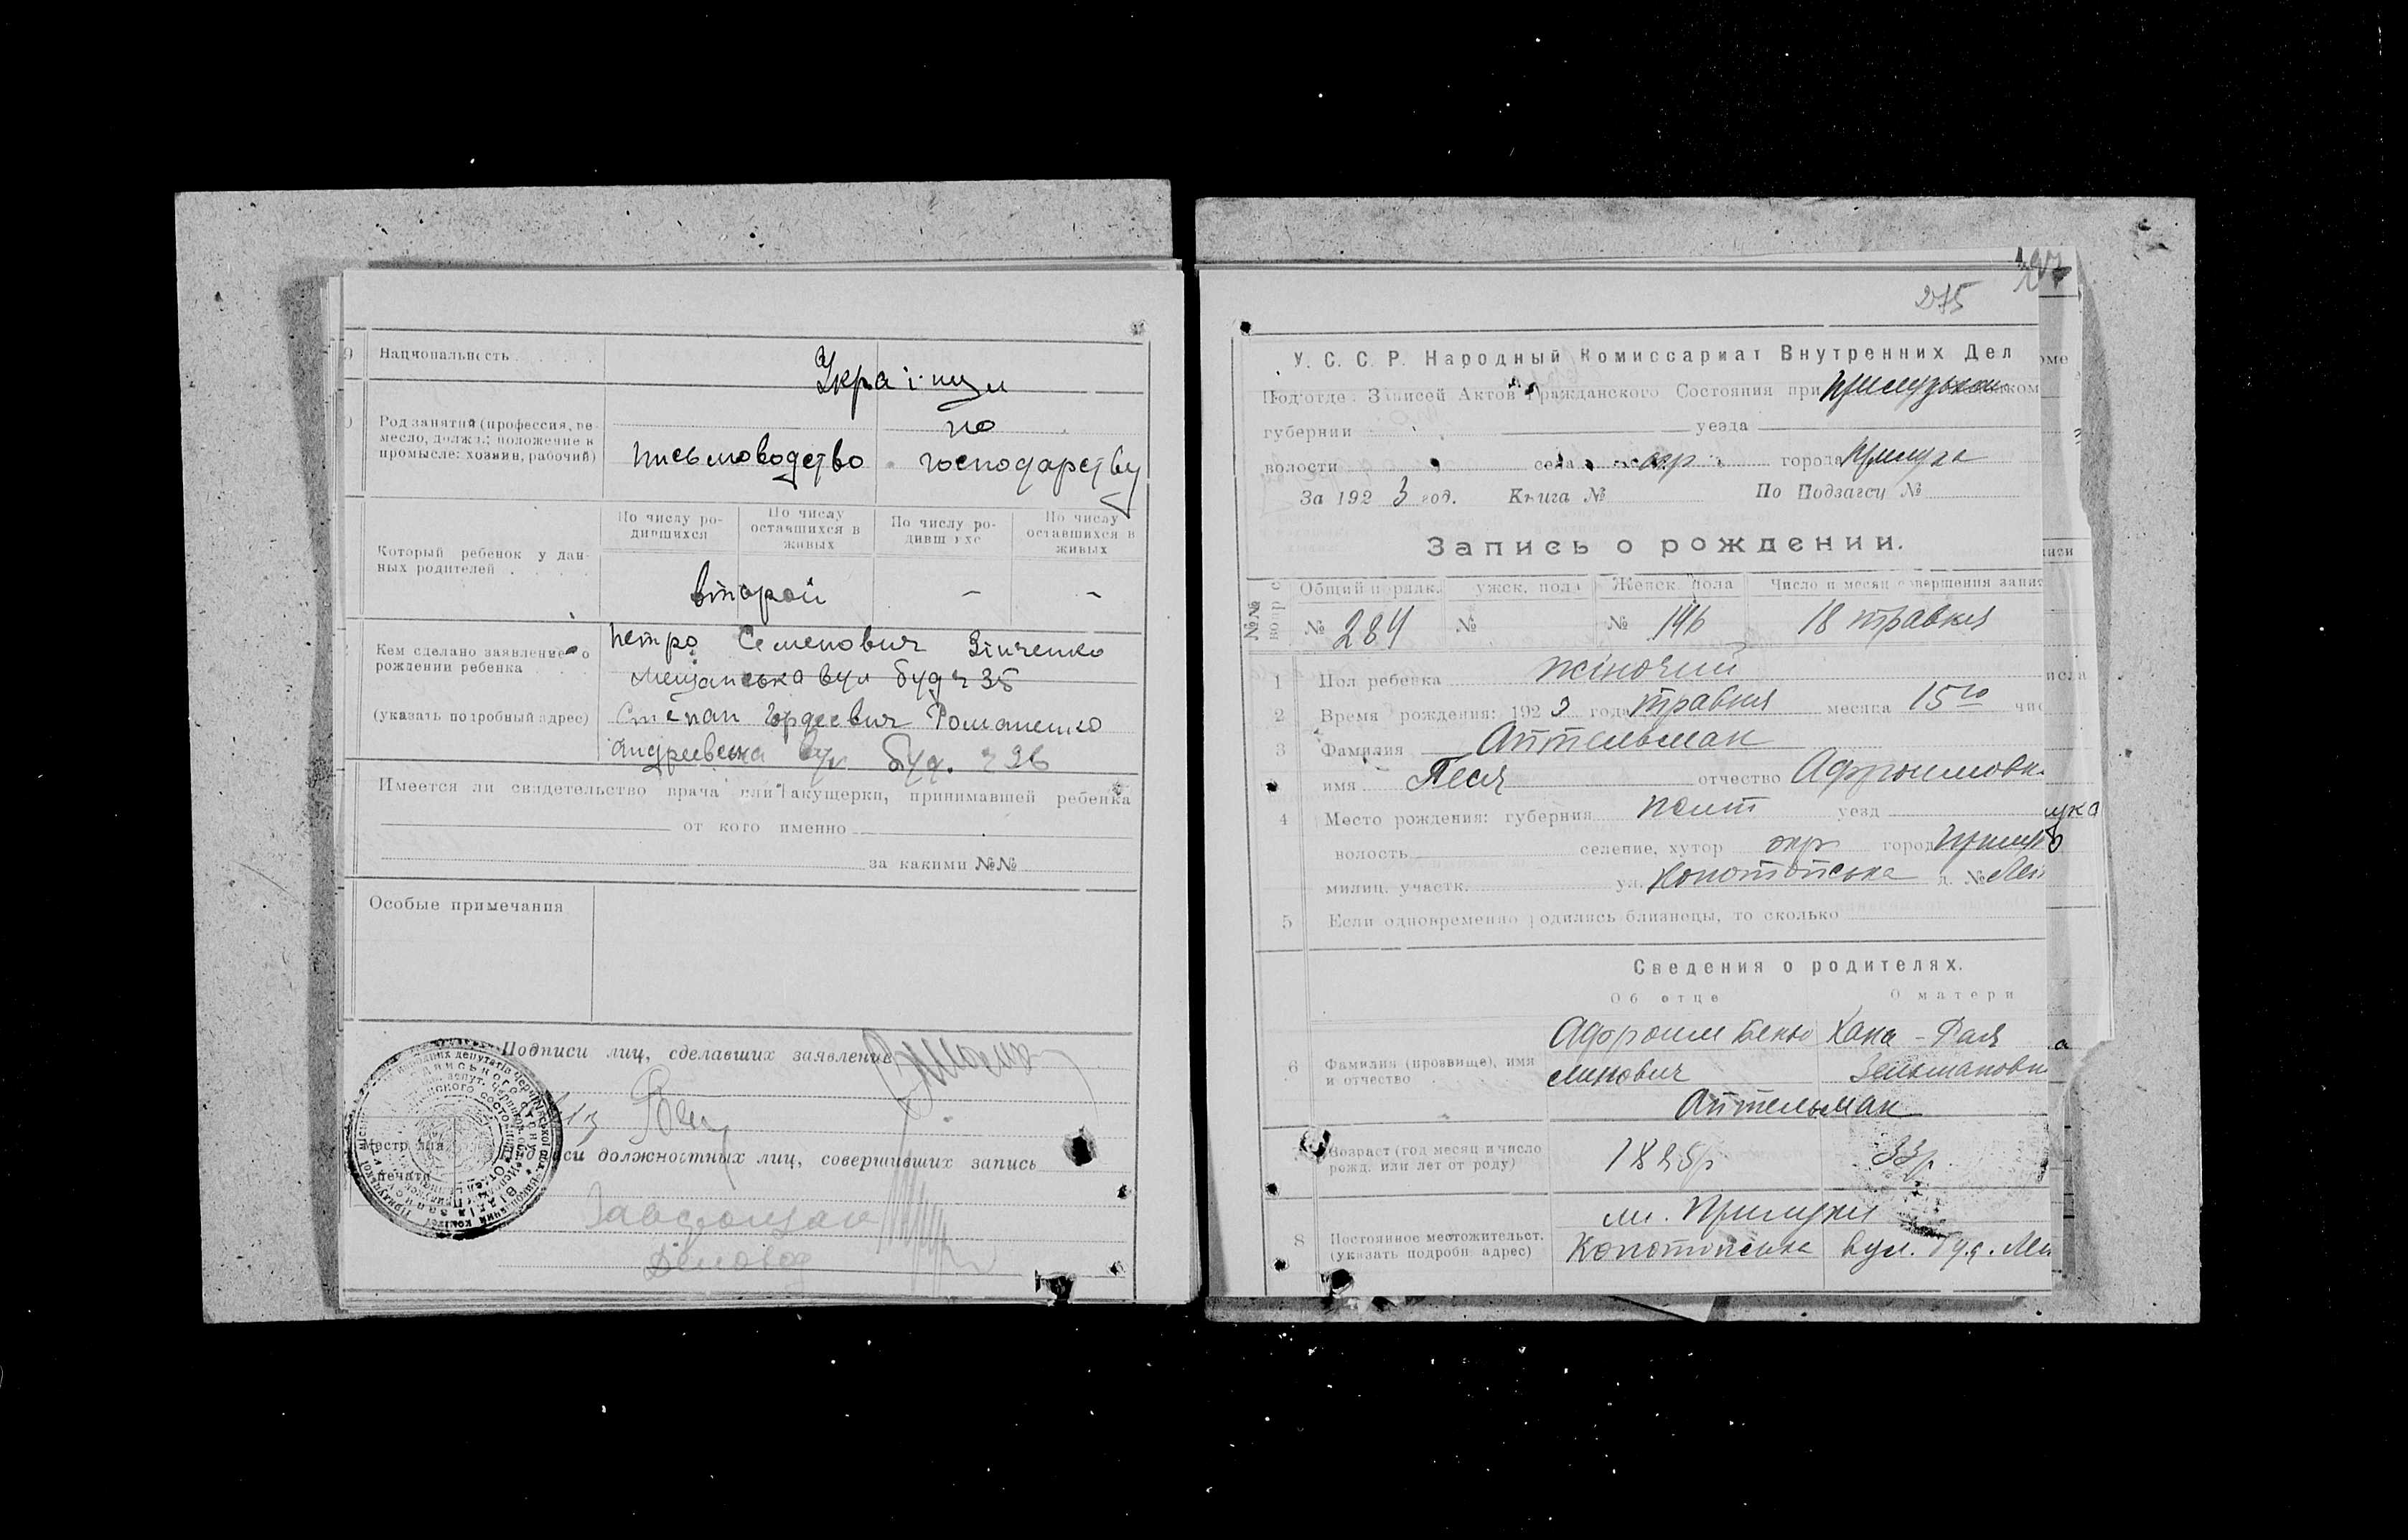 9 Национальность
Українци
Род занятий (профессия, ре-
месло, должн.; положение в
промысле: хозяин, рабочий)
письмоводство
по
господарству
Который ребенок у дан-
ных родителей
По числу ро-
дившихся
По числу
оставшихся в
живых
По числу ро-
дивш ихс
По числу
оставшихся в
живых
второй – –
Кем сделано заявление о
рождении ребенка
(указать подробный адрес)
Петро Семенович Зінченко
Мещанська вул буд ч 35
Степан Гордеевич Романенко
Андреевська вул. буд. ч 36
Имеется ли свидетельство врача или акушерки, принимавшей ребенка
от кого именно
за какими №№
Особые примечания
Подписи лиц, сделавших заявление
си должностных лиц, совершивших запись
Место для
печати
Діловод
275
У. С. С. Р. Народный Комиссариат Внутренних Дел
Подотде. Записей Актов Гражданского Состояния при
губернии уезда
волости села окр города Прилука
За 192 3 год. Книга № По Подзагсу №
Запись о рождении.
№№
Общий порядк. ужск. пола Женск. пола Число и месяц совершения запис
№ 284 № № 146 18 травня
1 Пол ребенка жіночий
2 Время рождения: 192 3 года травня месяца 15го чис
3 Фамилия Аптельман
имя Песя отчество Афроимовн
4 Место рождения: губерния Полт уезд
волость селение, хутор окр город Прилук
милиц. участк. ул. Конотопська д. № Лен
5 Если одновременно родились близнецы, то сколько
Сведения о родителях.
Об отце О матери
6 Фамилия (прозвище), имя
и отчество
Афроим Беньо
минович
Хана - Рая
Зельмановн
Аптельман
Возраст (год месяц и число
рожд. или лет от роду)
33р.
8 Постоянное местожительст.
(указать подробн адрес)
м. Прилуки
Конотопська вул. Буд. Лен